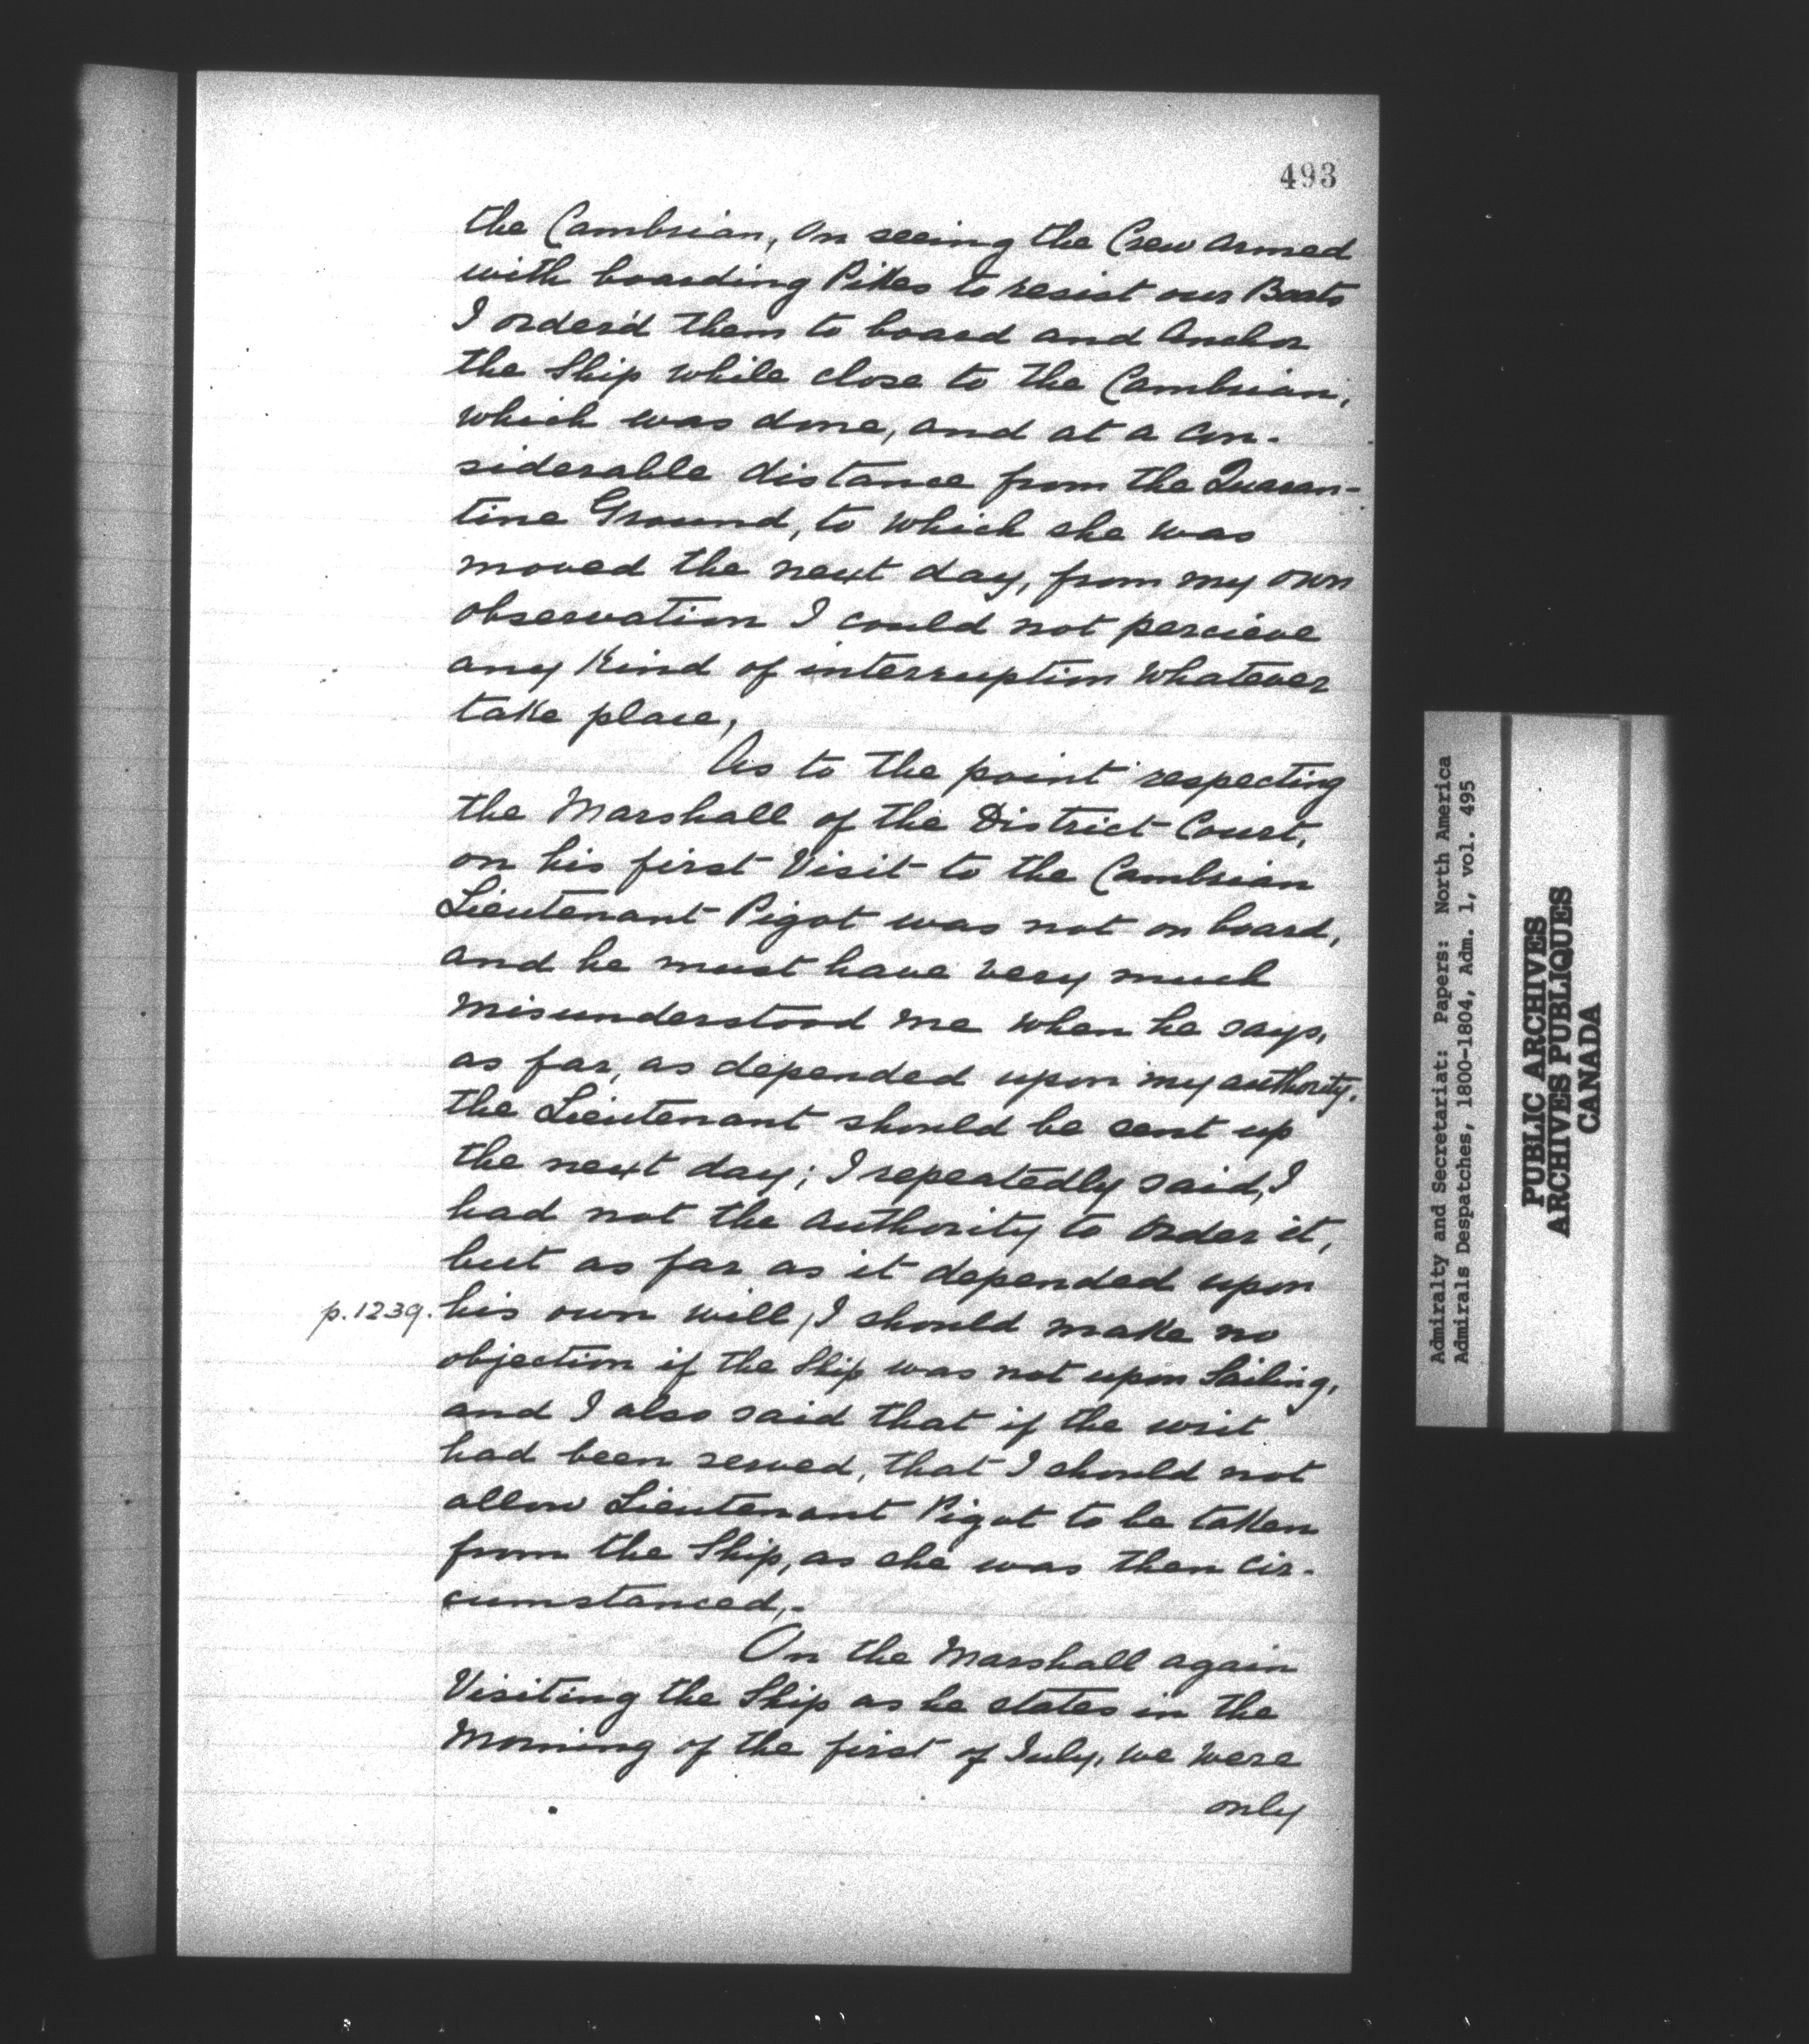 493
the Cambrian, on seeing the Crew armed
with boarding Pikes to resist our Boats
I order'd them to board and Anchor
the Ship while close to the Cambrian,
which was done, and at a con-
siderable distance from the Quaran-
tine Ground, to which she was
moved the next day, from my own
observation I could not percieve
any Kind of interruption whatever
take place,
As to the point respecting
the Marshall of the District Court,
on his first Visit to the Cambrian
Lieutenant Pigot was not on board,
and he must have very much
misunderstood me when he says,
as far, as depended upon my authority,
the Lieutenant should be sent up
the next day; I repeatedly said, I
had not the authority to order it,
but as far as it depended upon
p. 1239. his own will, I should make no
objection if the Ship was not upon Sailing,
and I also said that if the writ
had been served, that I should not
allow Lieutenant Pigot to be taken
from the Ship, as she was then cir-
cumstanced,-
On the Marshall again
Visiting the Ship as he states in the
Morning of the first of July, we were
only
Admiralty and Secretariat: Papers: North America
Admirals Despatches, 1800-1804, Adm. 1, vol. 495
PUBLIC ARCHIVES
ARCHIVES PUBLIQUES
CANADA